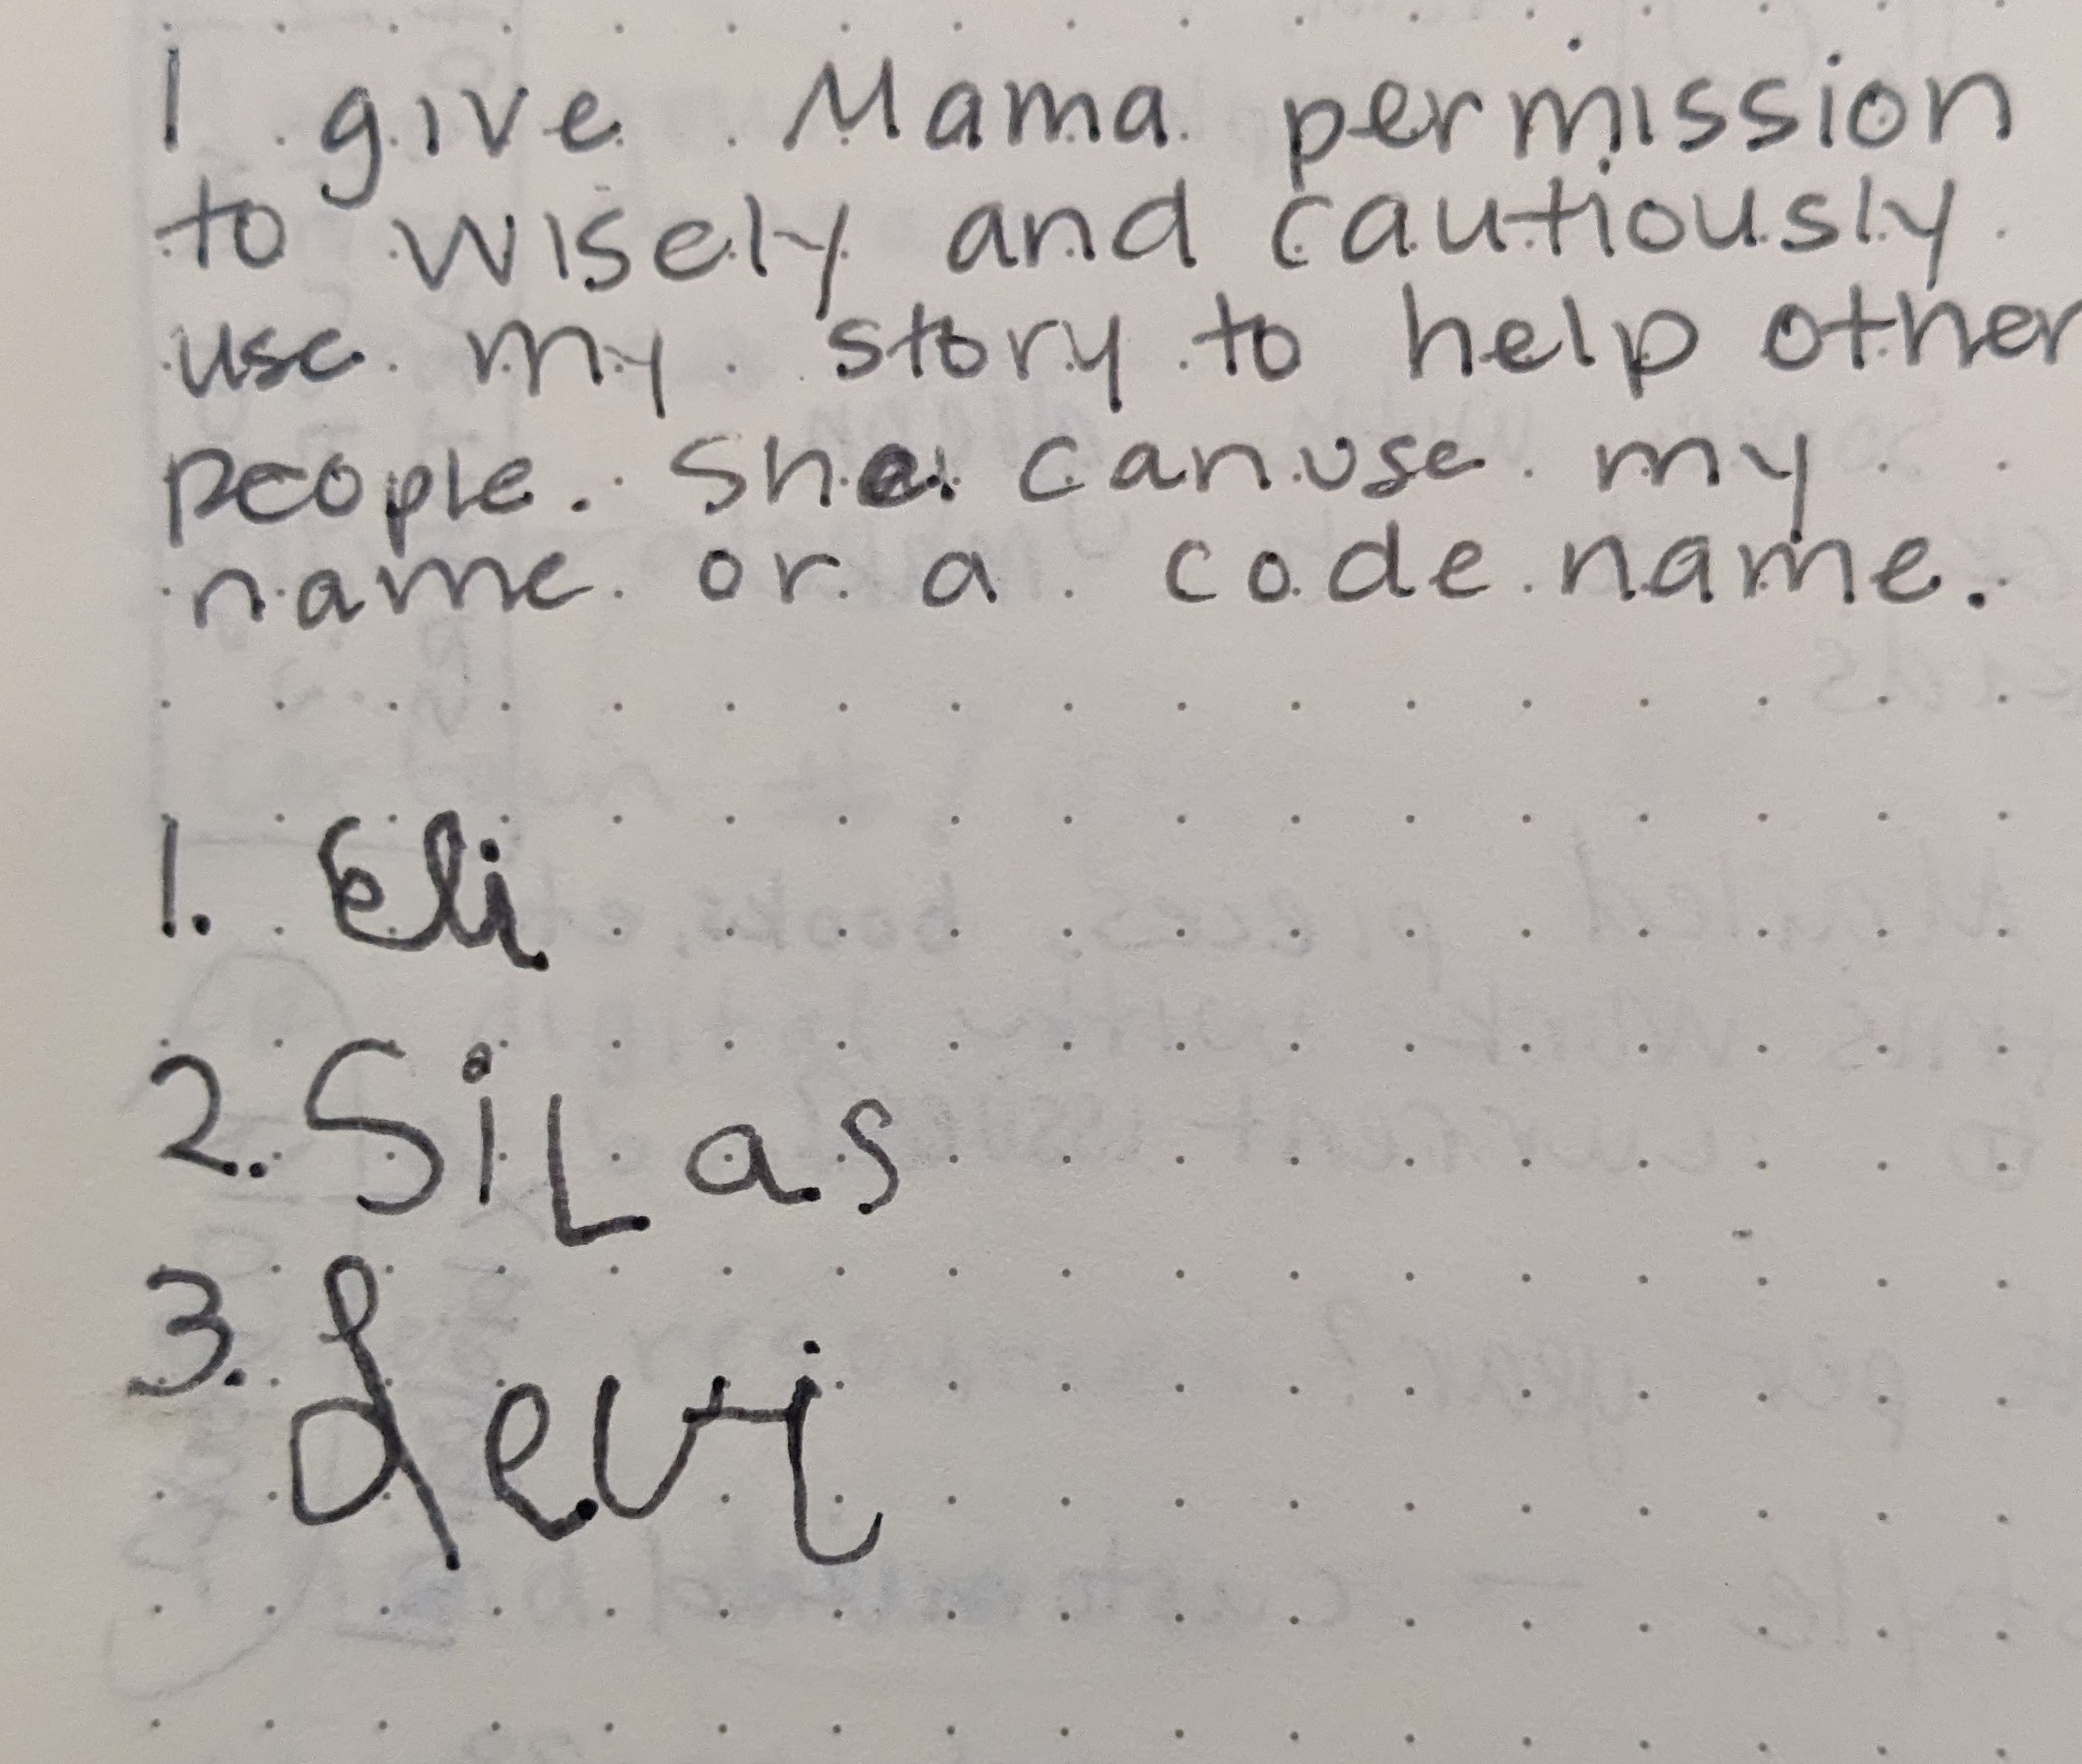 I give Mama permission
to wisely and cautiously
use my story to help other
people. She can use my
name or a code name.
1. Eli
2. SiLas
3. Levi